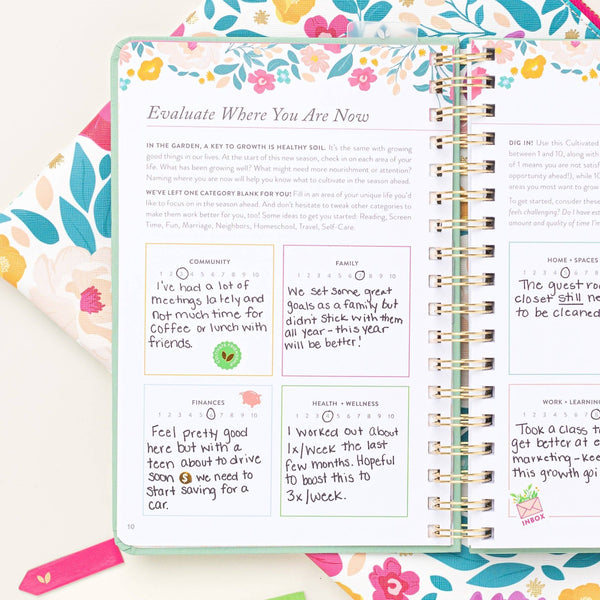 Evaluate Where You Are Now
IN THE GARDEN, A KEY TO GROWTH IS HEALTHY SOIL. It's the same with growing
good things in our lives. At the start of this new season, check in on each area of your
life. What has been growing well? What might need more nourishment or attention?
Naming where you are now will help you know what to cultivate in the season ahead.
WE'VE LEFT ONE CATEGORY BLANK FOR YOU! Fill in an area of your unique life you'd
like to focus on in the season ahead. And don't hesitate to tweak other categories to
make them work better for you, too! Some ideas to get you started: Reading, Screen
Time, Fun, Marriage, Neighbors, Homeschool, Travel, Self-Care.
COMMUNITY
1 2 3 4 5 6 7 8 9 10
I've had a lot of
meetings lately and
not much time for
coffee or lunch with
friends.
FAMILY
1 2 3 4 5 6 7 8 9 10
We set some great
goals as a family but
didn't stick with them
all year - this year
will be better!
FINANCES
1 2 3 4 5 6 7 8 9 10
Feel pretty good
here but with a
teen about to drive
soon $ we need to
start saving for a
car.
HEALTH + WELLNESS
1 2 3 4 5 6 7 8 9 10
I worked out about
1x/week the last
few months. Hopeful
to boost this to
3x/week.
10
DIG IN! Use this Cultivated
between 1 and 10, along with
of 1 means you are not satisf
opportunity ahead!), while 10
areas you most want to grow
To get started, consider these
feels challenging? Do I have
amount and quality of time I'm
HOME + SPACES
1 2 3 4 5 6 7
The guest roo
closet still ne
to be cleaned
WORK + LEARNING
1 2 3 4 5 6 7
Took a class t
get better at e
marketing - kee
this growth goi
INBOX